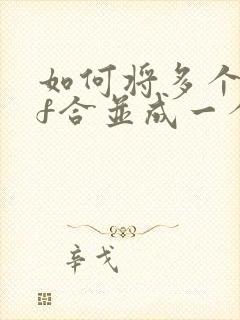 如何将多个
f合並成一
辛戈